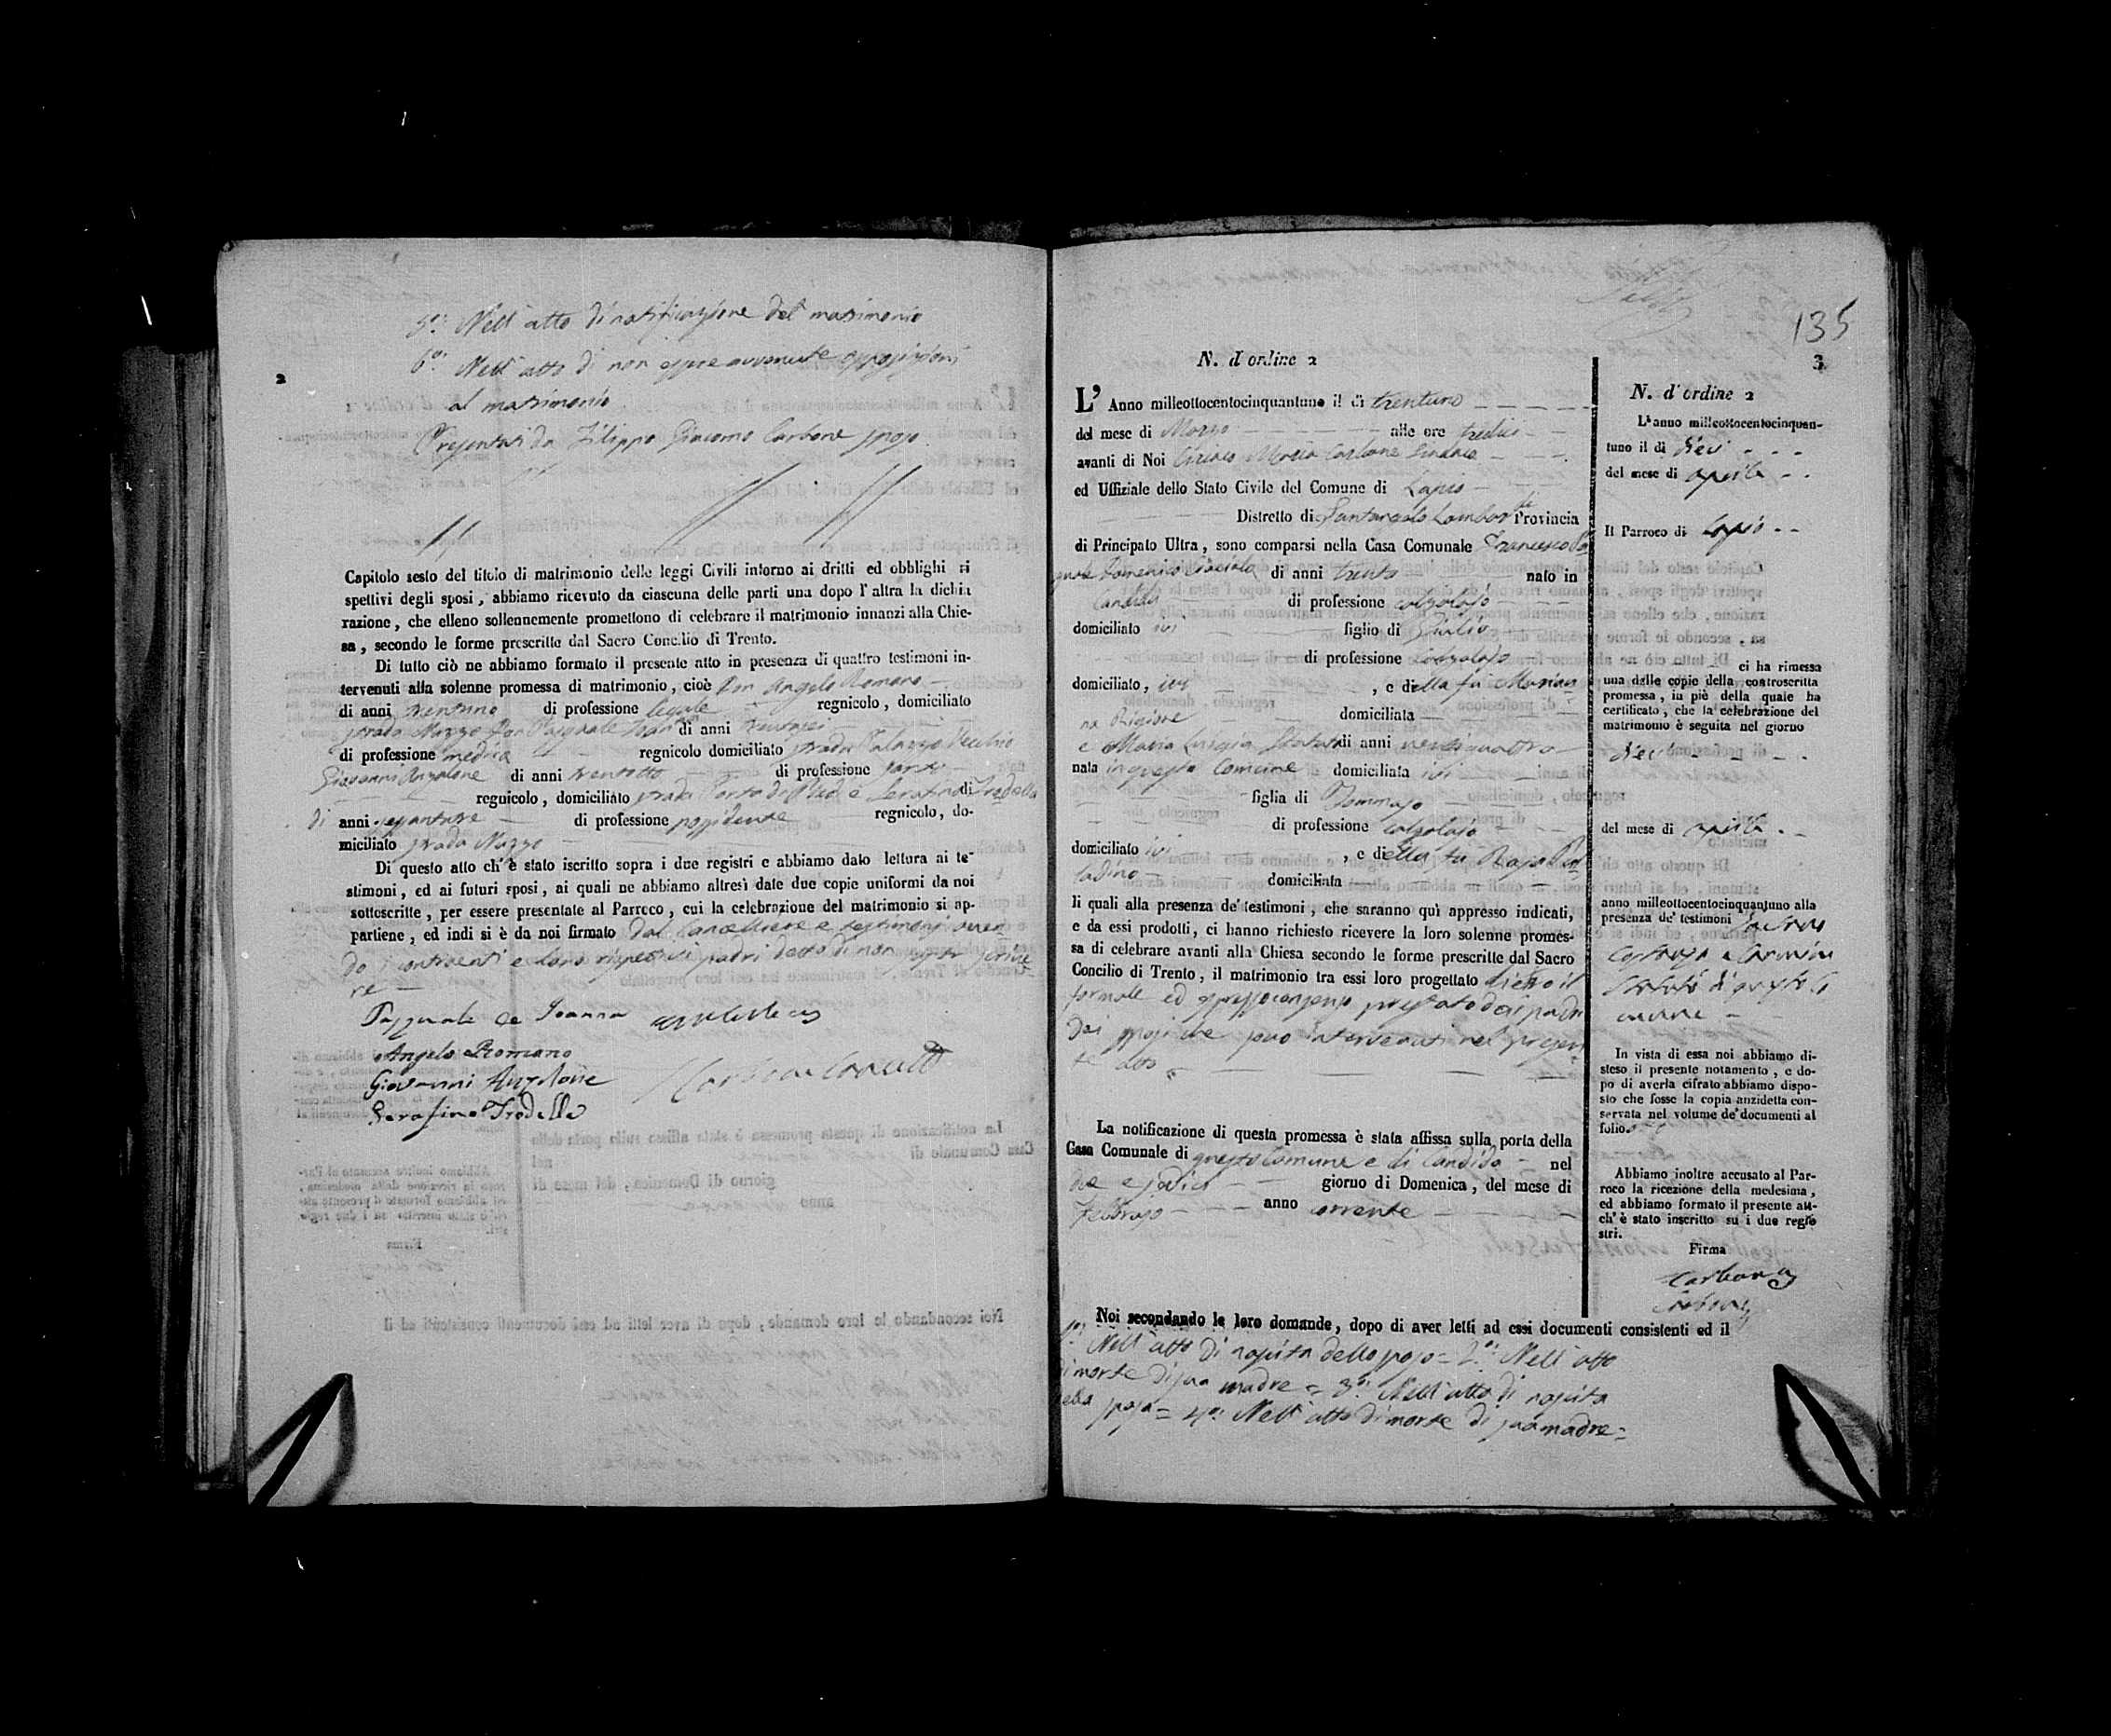 2
5°: Nell'atto di notificazione del matrimonio
6°: Nell'atto di non essere avvenute opposizioni
al matrimonio
Presentati da Filippo Giacomo Carbone sposo
Capitolo sesto del titolo di matrimonio delle leggi Civili intorno ai dritti ed obblighi ri
spettivi degli sposi, abbiamo ricevuto da ciascuna delle parti una dopo l'altra la dichia
razione, che elleno sollennemente promettono di celebrare il matrimonio innanzi alla Chie-
sa, secondo le forme prescritte dal Sacro Concilio di Trento.
Di tutto ciò ne abbiamo formato il presente atto in presenza di quattro testimoni in-
tervenuti alla solenne promessa di matrimonio, cioè Don Angelo Romano
di anni trentuno di professione legale regnicolo, domiciliato
strada Mezzo Don Pasquale di anni
di professione medico regnicolo domiciliato strada Palazzo Vecchio
Giovanni Anzalone di anni trentotto di professione sarto
regnicolo, domiciliato strada Porta di e Serafino di Irodella
di anni sessantatre di professione possidente regnicolo, do-
miciliato strada Mezzo
Di questo atto ch'è stato iscritto sopra i due registri e abbiamo dato lettura ai te-
stimoni, ed ai futuri sposi, ai quali ne abbiamo altresì date due copie uniformi da noi
sottoscritte, per essere presentate al Parroco, cui la celebrazione del matrimonio si ap-
partiene, ed indi si è da noi firmato dal Cancelliere e testimoni aven
do i contraenti e loro rispettivi padri detto di non saper scrive
re
Pasquale de Joanna
Angelo Romano
Giovanni Anzalone
Serafino Irodella
135
3
N. d'ordine 2
L'Anno milleottocentocinquantuno il dì trentuno
del mese di Marzo alle ore tredici
avanti di Noi Ciriaco Maria Carbone Sindaco
ed Uffiziale dello Stato Civile del Comune di Lapio
Distretto di Santangelo Lombardi Provincia
di Principato Ultra, sono comparsi nella Casa Comunale Francesco Pas
quale Domenico di anni trenta nato in
Candida di professione calzolajo
domiciliato ivi figlio di Giulio
di professione calzolajo
domiciliato, ivi, e della fu Marian
na domiciliata
e Maria Luigia di anni ventiquattro
nata in questo Comune domiciliata ivi
figlia di Tommaso
di professione calzolajo
domiciliato ivi, e della fu Rosa Pal
ladino domiciliata
li quali alla presenza de' testimoni, che saranno quì appresso indicati,
e da essi prodotti, ci hanno richiesto ricevere la loro solenne promes-
sa di celebrare avanti alla Chiesa secondo le forme prescritte dal Sacro
Concilio di Trento, il matrimonio tra essi loro progettato dietro il
formale ed espresso consenso prestato dai padri
dei sposi che sono intervenuti nel presen
te atto
La notificazione di questa promessa è stata affissa sulla porta della
Casa Comunale di questo Comune e di Candida nel
dì giorno di Domenica, del mese di
Febbrajo anno corrente
Noi secondando le loro domande, dopo di aver letti ad essi documenti consistenti ed il
1°: Nell'atto di nascita dello sposo = 2°: Nell'atto
di morte di sua madre = 3°: Nell'atto di nascita
della sposa = 4°: Nell'atto di morte di sua madre =
N. d'ordine 2
L'anno milleottocentocinquan-
tuno il dì dieci
del mese di aprile
Il Parroco di Lapio
ci ha rimessa
una delle copie della controscritta
promessa, in piè della quale ha
certificato, che la celebrazione del
matrimonio è seguita nel giorno
dieci
del mese di aprile
anno milleottocentocinquantuno alla
presenza de' testimoni
e Carmine
di questo Co
mune
In vista di essa noi abbiamo di-
steso il presente notamento, e do-
po di averla cifrato abbiamo dispo-
sto che fosse la copia anzidetta con-
servata nel volume de' documenti al
folio.
Abbiamo inoltre accusato al Par-
roco la ricezione della medesima,
ed abbiamo formato il presente at-
ch'è stato inscritto su i due regi-
stri.
Firma
Carbone